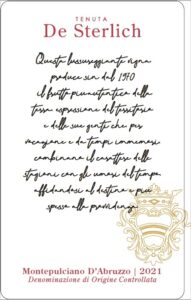 TENUTA
De Sterlich
Questa lussureggiante vigna
produce sin dal 1970
il frutto più autentico della
terra espressione del territorio
e della sua gente che per
vocazione e da tempi immemori
combinano il carattere delle
stagioni con gli umori del tempo
affidandosi al destino e più
spesso alla provvidenza.
Montepulciano D'Abruzzo | 2021
Denominazione di Origine Controllata